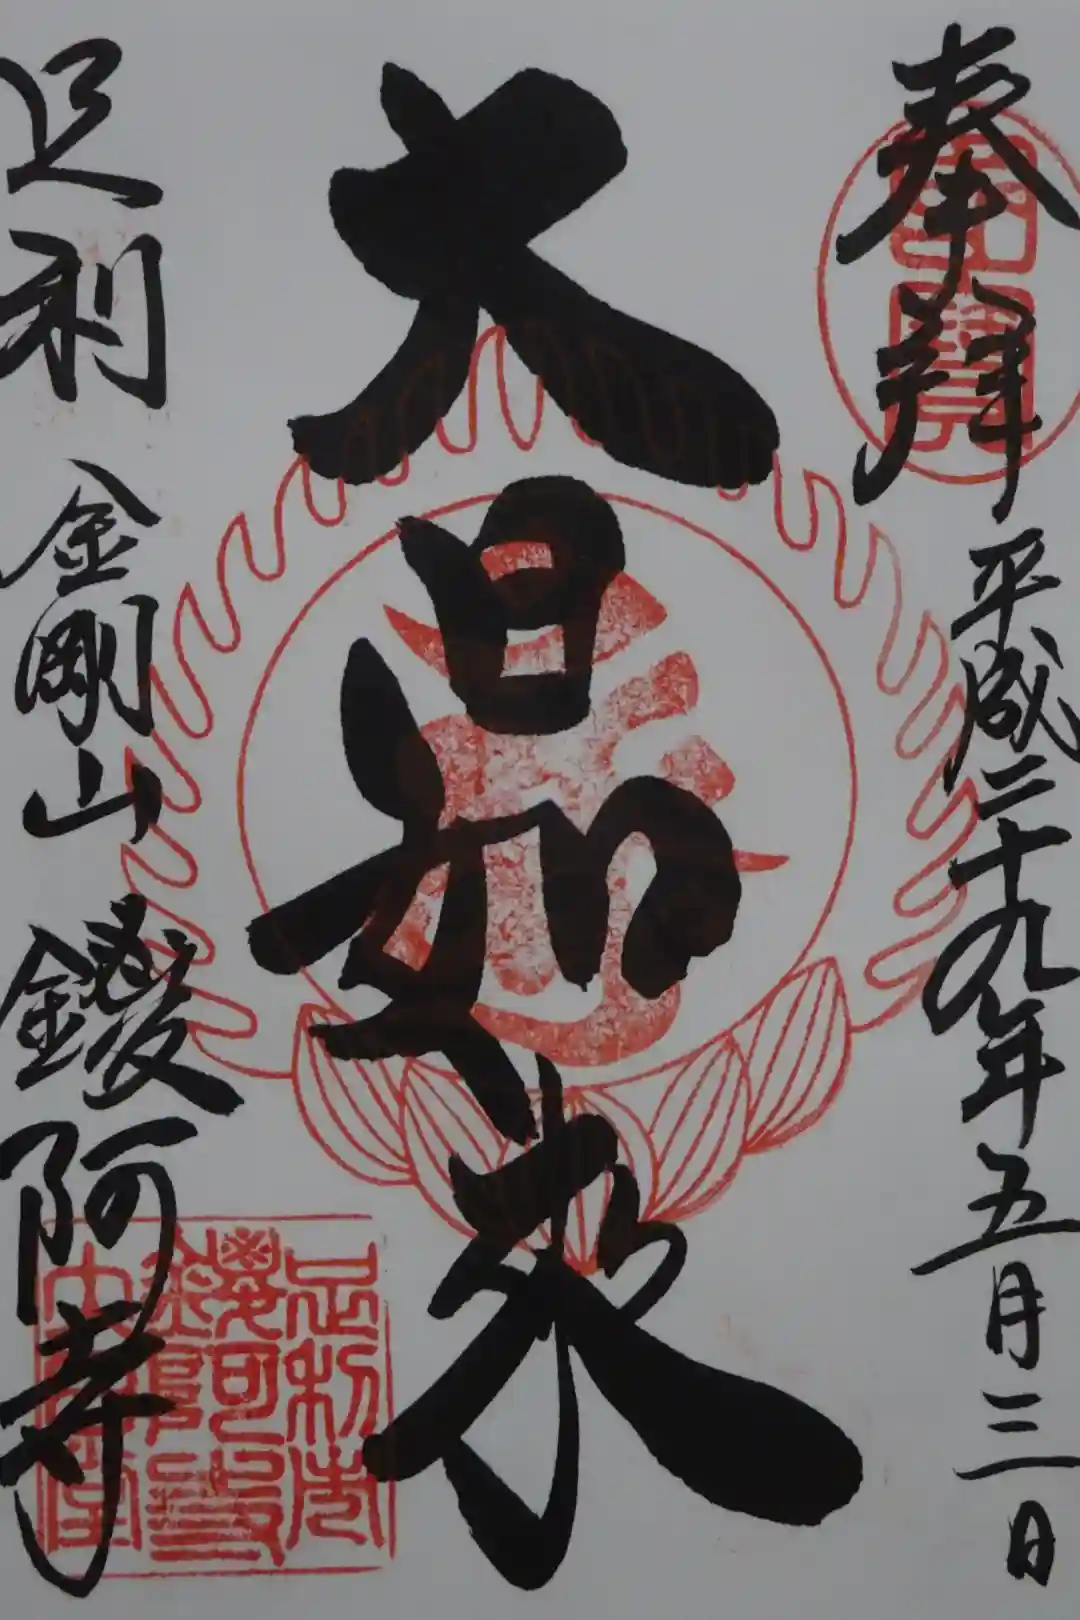 奉拝
平成二十九年五月三日
大日如来
足利 金剛山 鑁阿寺
足利市
鑁阿寺